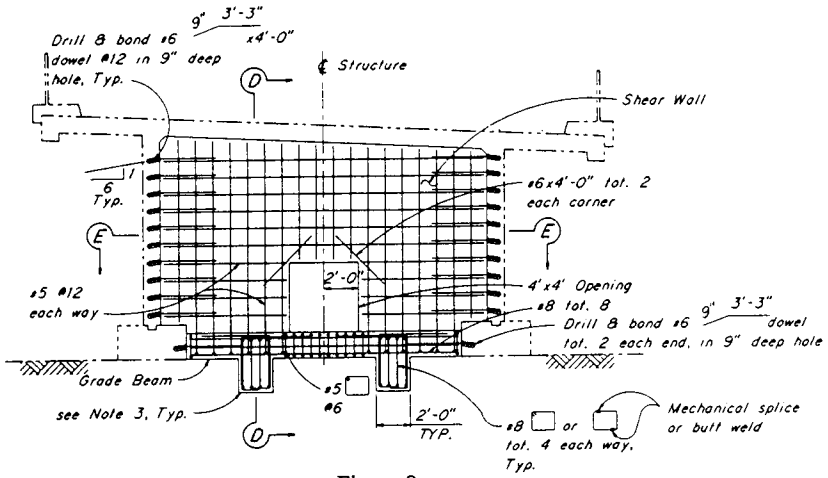 Drill & bond #6 9" 3'-3" x4'-0"
dowel @12 in 9" deep
hole, Typ.
D
℄ Structure
Shear Wall
6
1
Typ.
#6x4'-0" tot. 2
each corner
E
E
2'-0"
4'x4' Opening
#5 @12
each way
#8 tot. 8
Drill & bond #6 9" 3'-3" dowel
tot. 2 each end, in 9" deep hole
Grade Beam
see Note 3, Typ.
#5
@6
D
2'-0"
TYP.
#8 or
tot. 4 each way,
Typ.
Mechanical splice
or butt weld